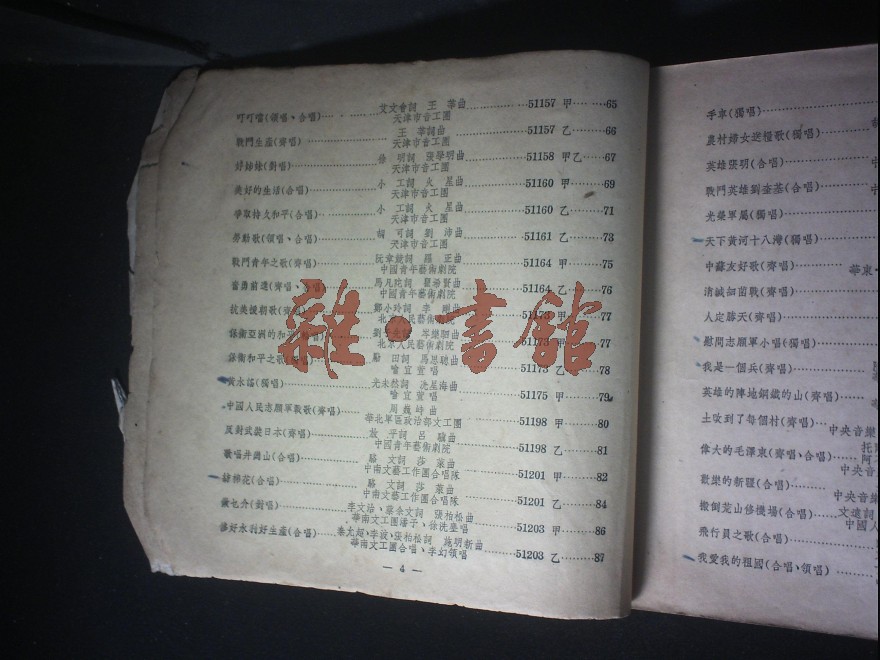 艾文會詞 王莘曲
叮叮噹(領唱、合唱)……51157 甲……65
天津市音工團
王莘詞曲
戰鬥生產(齊唱)……51157 乙……66
天津市音工團
明詞 張學明曲
好姊妹(對唱)……51158 甲乙……67
天津市音工團
小工詞 火星曲
美好的生活(合唱)……51160 甲……69
天津市音工團
小工詞 火星曲
爭取持久和平(合唱)……51160 乙……71
天津市音工團
胡可詞 劉沛曲
勞動歌(領唱、合唱)……51161 乙……73
天津市音工團
阮章競詞 羅正曲
戰鬥青年之歌(齊唱)……51164 甲……75
中國青年藝術劇院
馬凡陀詞 瞿希賢曲
奮勇前進(齊唱、合唱)……51164 乙……76
中國青年藝術劇院
鄭小玲詞 李
抗美援朝歌(齊唱)……51173 甲……77
北京人民藝術劇院
保衛亞洲的和平……51173 甲……77
北京人民藝術劇院
田詞 馬思聰曲
保衛和平之歌……51173 乙……78
喻宜萱唱
光未然詞 冼星海曲
黃水謠(獨唱)……51175 甲……79
喻宜萱唱
周巍峙曲
中國人民志願軍戰歌(齊唱)……51198 甲……80
華北軍區政治部文工團
放平詞 呂驥曲
反對武裝日本(齊唱)……51198 乙……81
中國青年藝術劇院
文詞 莎萊曲
歌唱井崗山(合唱)……51201 甲……82
中南文藝工作團合唱隊
文詞 莎萊曲
紡棉花(合唱)……51201 乙……84
中南文藝工作團合唱隊
李文詞 張柏松曲
(對唱)……51203 甲……86
華南文工團
張柏松詞 施明新曲
修好水利好生產(合唱)……51203 乙……87
華南文工團合唱、李幻領唱
— 4 —
雜·書館
手車(獨唱)
農村婦女送糧歌(獨唱)
英雄張明(合唱)
戰鬥英雄劉奎基(合唱)
光榮軍屬(獨唱)
天下黃河十八灣(獨唱)
中蘇友好歌(齊唱)
華東
消滅細菌戰(齊唱)
人定勝天(齊唱)
慰問志願軍小唱(獨唱)
我是一個兵(齊唱)
英雄的陣地鋼鐵的山(齊唱)
土改到了每個村(齊唱)
中央音樂
偉大的毛澤東(齊唱、合唱)
中央音
歡樂的新疆(合唱)
中央音
搬倒荒山修機場(合唱)
文進詞
中國人
飛行員之歌(合唱)
我愛我的祖國(合唱、領唱)